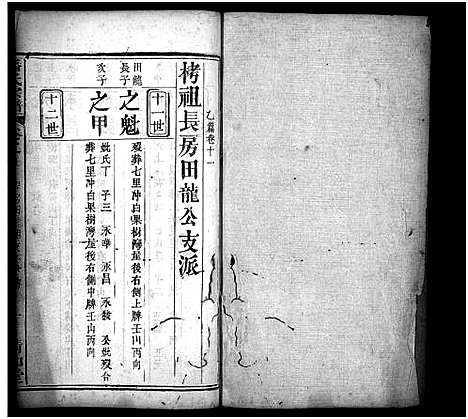 乙篇卷十一
栲祖長房田龍公支派
十一世
田龍長子
之魁
歿葬七里冲白果樹灣屋後右側上牌壬山丙向
次子
之甲
妣氏丁 子三 永華 永昌 永發 公妣歿合
葬七里冲白果樹灣屋後右側中牌壬山丙向
十二世